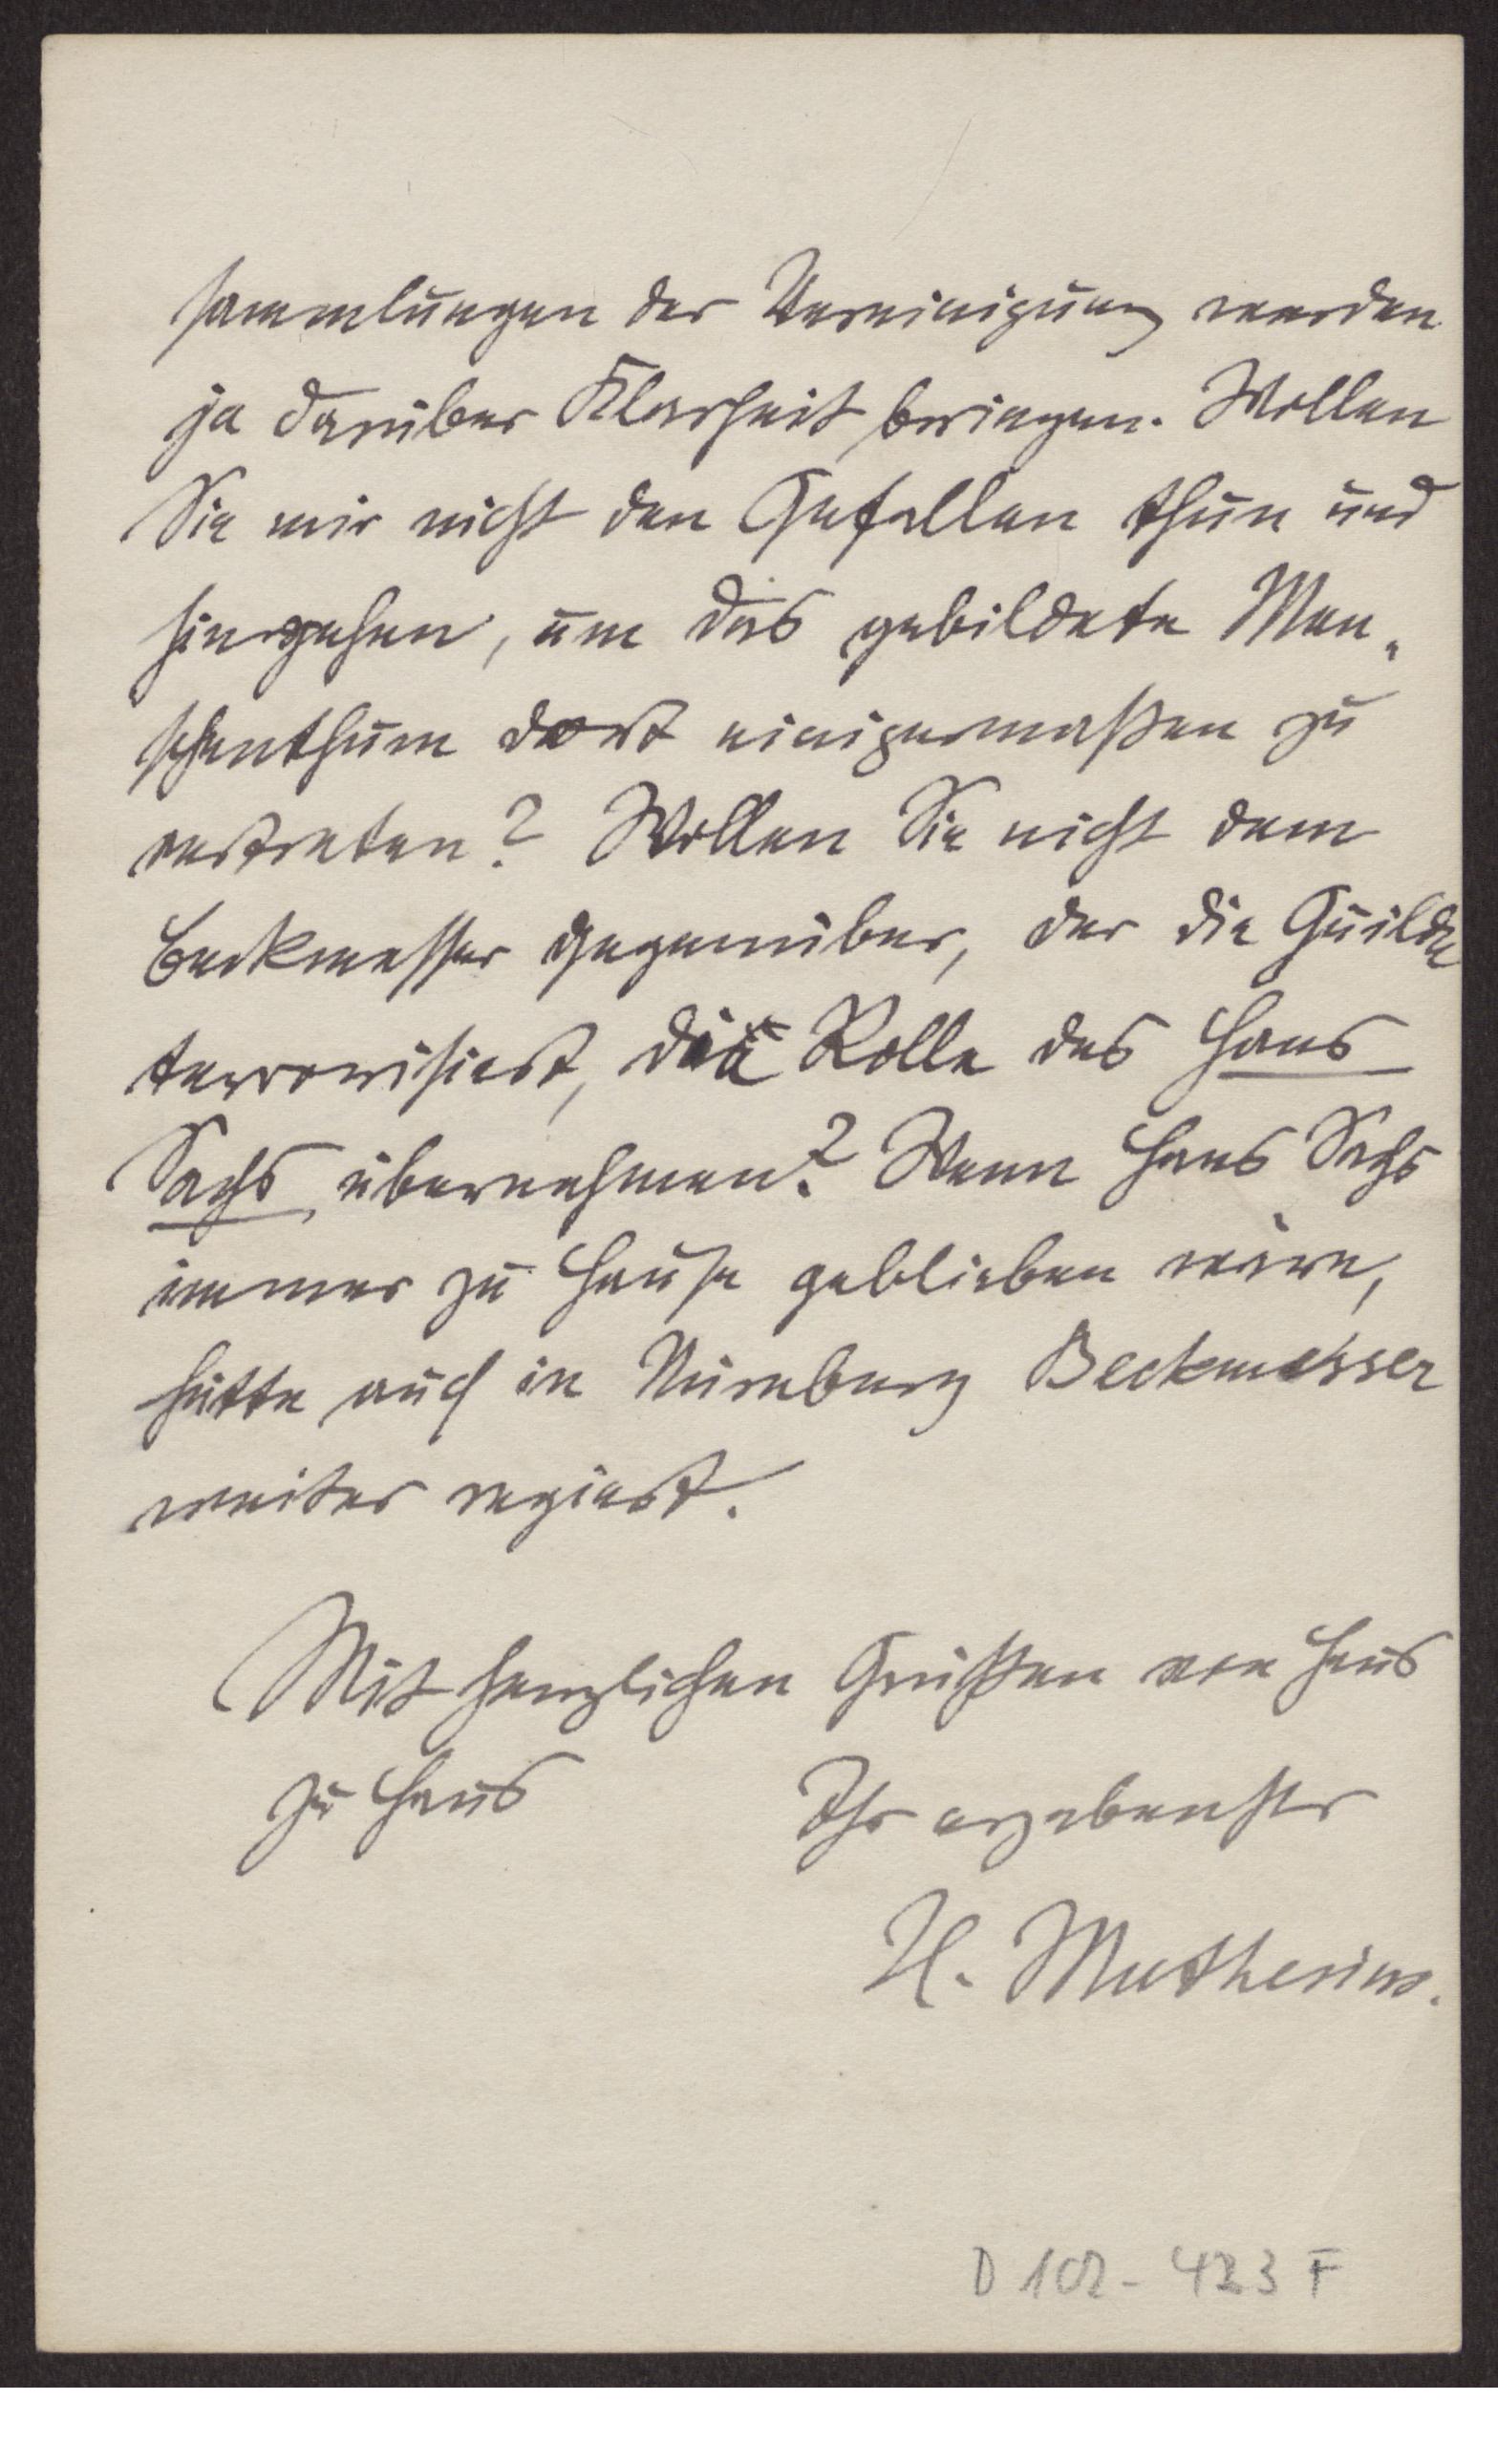 sammlungen der Vereinigung werden
ja darüber Klarheit bringen. Wollen
Sie mir nicht den Gefallen thun und
hingehen, um das gebildete Men-
schenthum dort einigermaßen zu
vertreten? Wollen Sie nicht dem
Beckmesser gegenüber, der die Guilde
terrorisiert, die Rolle des Hans
Sachs übernehmen? Wenn Hans Sachs
immer zu Hause geblieben wäre,
hätte auch in Nürnberg Beckmesser
weiter regiert.
Mit herzlichen Grüßen von Haus
zu Haus
Ihr ergebenster
H. Muthesius.
D 102-423 F